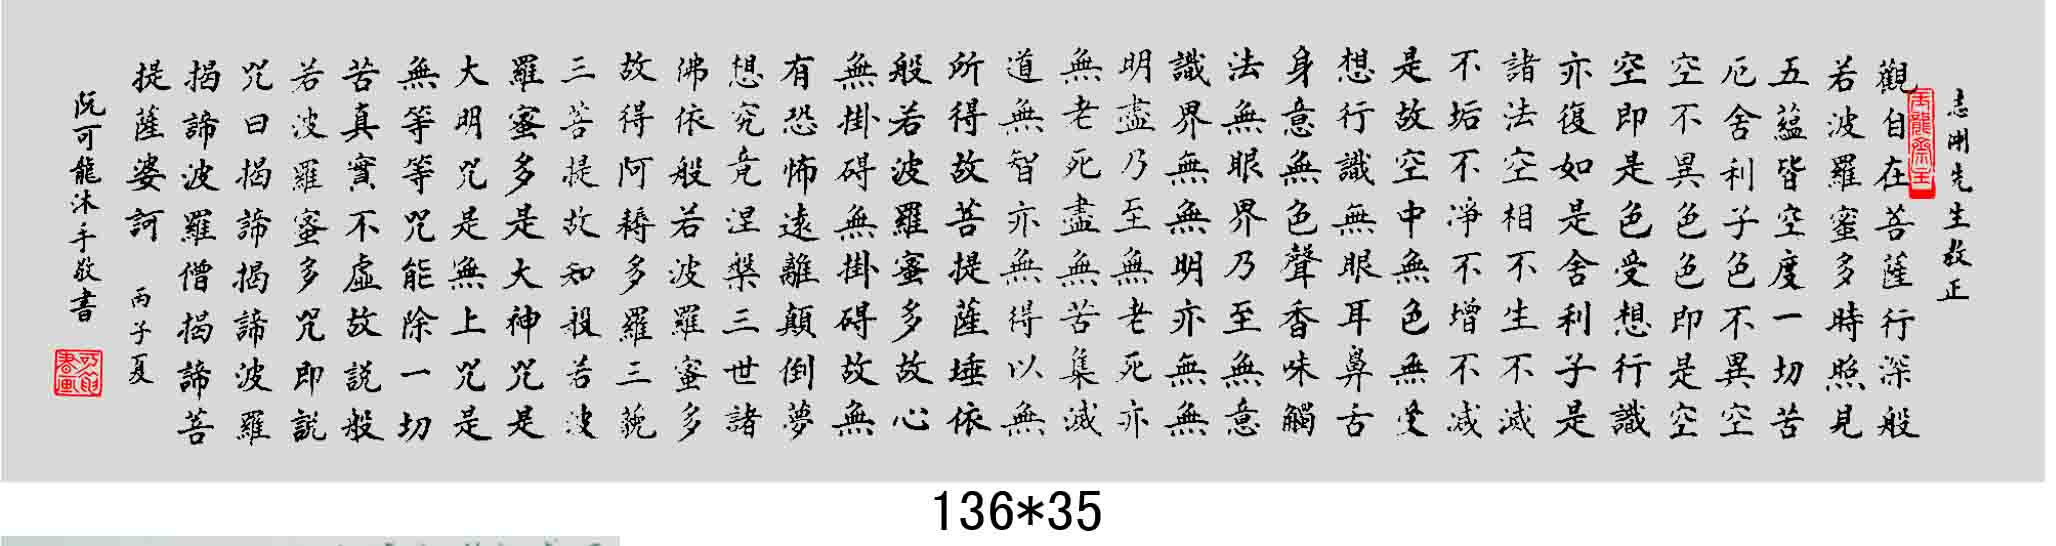 志刚先生教正
觀自在菩薩行深般
若波羅蜜多時照見
五蘊皆空度一切苦
厄舍利子色不異空
空不異色色即是空
空即是色受想行識
亦復如是舍利子是
諸法空相不生不滅
不垢不淨不增不减
是故空中無色無受
想行識無眼耳鼻舌
身意無色聲香味觸
法無眼界乃至無意
識界無無明亦無無
明盡乃至無老死亦
無老死盡無苦集滅
道無智亦無得以無
所得故菩提薩埵依
般若波羅蜜多故心
無掛碍無掛碍故無
有恐怖遠離顛倒夢
想究竟涅槃三世諸
佛依般若波羅蜜多
故得阿耨多羅三藐
三菩提故知般若波
羅蜜多是大神咒是
大明咒是無上咒是
無等等咒能除一切
苦真實不虛故説般
若波羅蜜多咒即説
咒曰揭諦揭諦波羅
揭諦波羅僧揭諦菩
提薩婆訶 丙子夏
阮可龍沐手敬書
136*35